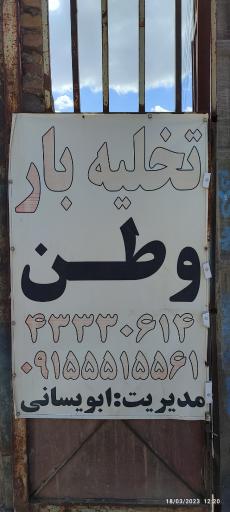 تخلیه بار
وطن
۴۳۳۳۰۶۱۴
۰۹۱۵۵۵۱۵۵۶۱
مدیریت:ابویسانی
18/03/2023 12:20